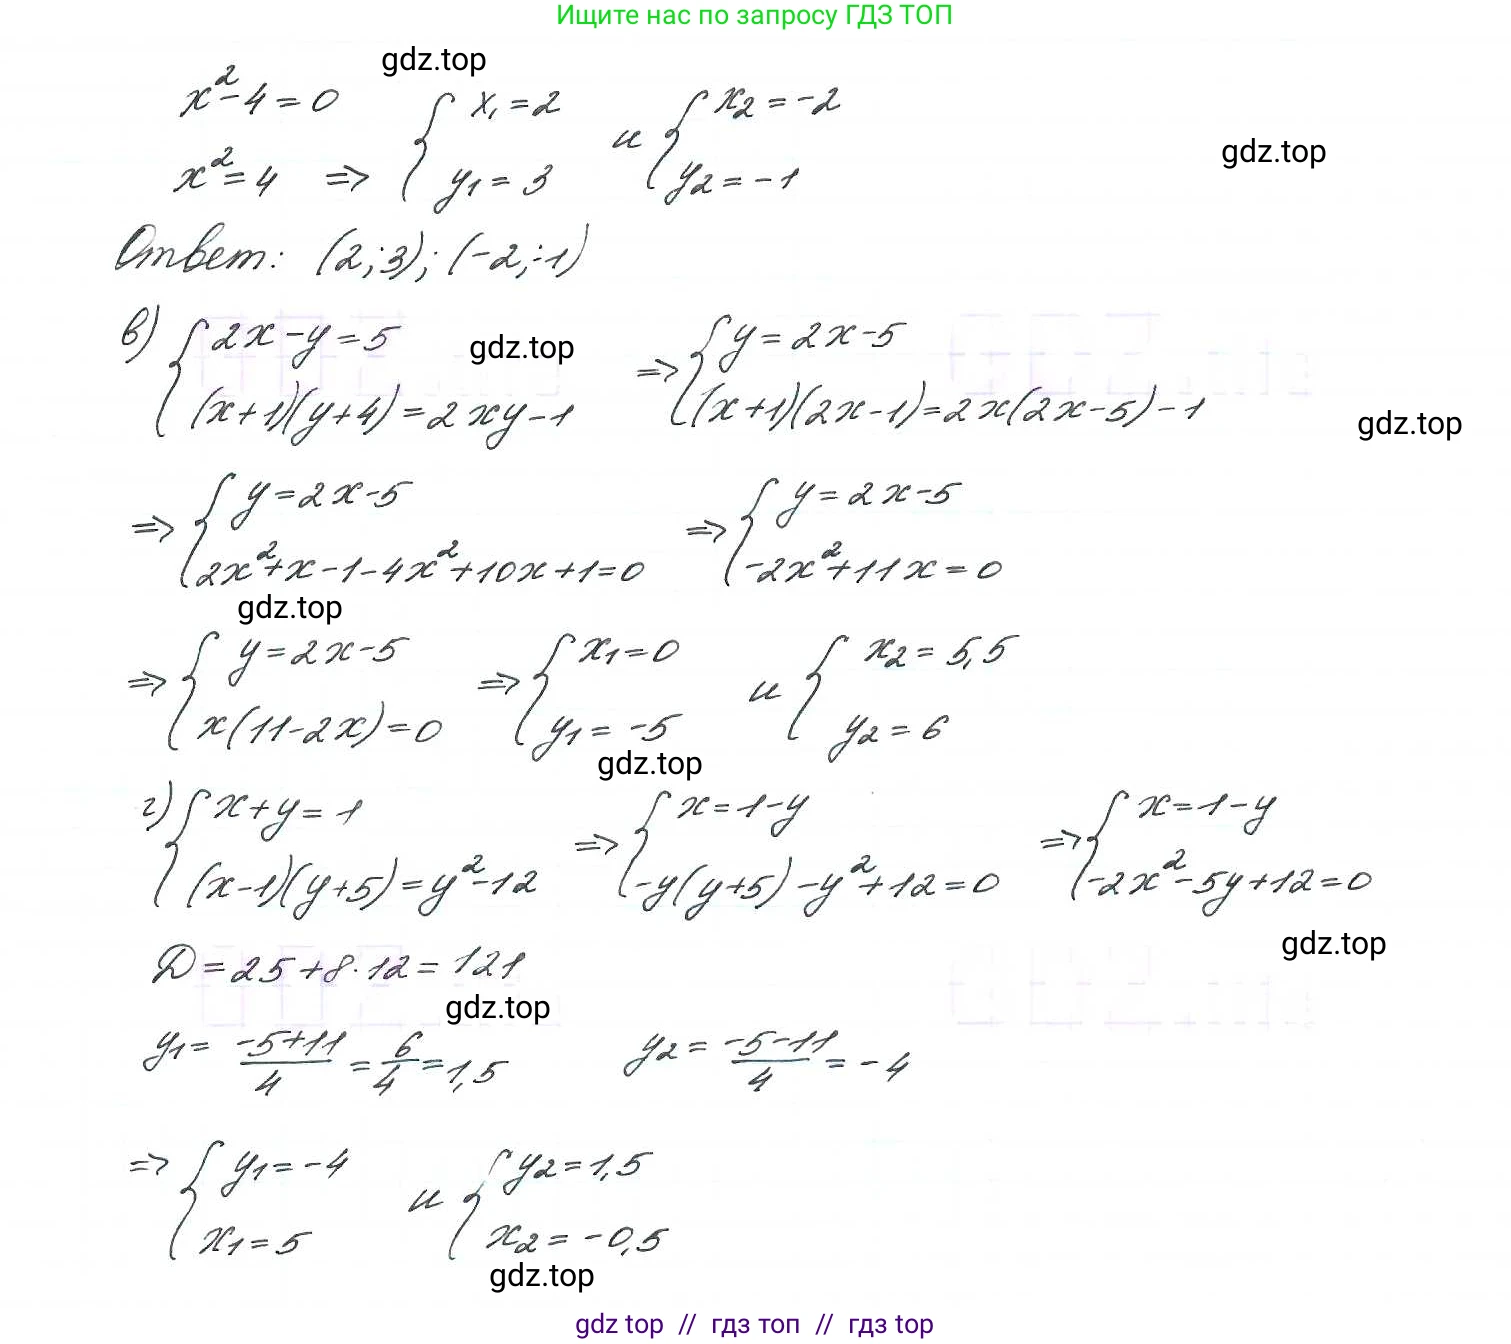 Ищите нас по запросу ГДЗ ТОП
gdz.top
x²-4=0
x²=4 => { x₁=2 y₁=3 и { x₂=-2 y₂=-1
gdz.top
Ответ: (2;3); (-2;-1)
в) { 2x-y=5 (x+1)(y+4)=2xy-1 => { y=2x-5 (x+1)(2x-1)=2x(2x-5)-1
gdz.top
gdz.top
=> { y=2x-5 2x²+x-1-4x²+10x+1=0 => { y=2x-5 -2x²+11x=0
gdz.top
=> { y=2x-5 x(11-2x)=0 => { x₁=0 y₁=-5 и { x₂=5,5 y₂=6
gdz.top
г) { x+y=1 (x-1)(y+5)=y²-12 => { x=1-y -y(y+5)-y²+12=0 => { x=1-y -2x²-5y+12=0
gdz.top
D=25+8·12=121
gdz.top
y₁= -5+11/4 = 6/4 =1,5 y₂= -5-11/4 = -4
=> { y₁=-4 x₁=5 и { y₂=1,5 x₂=-0,5
gdz.top
gdz top // гдз топ // gdz top